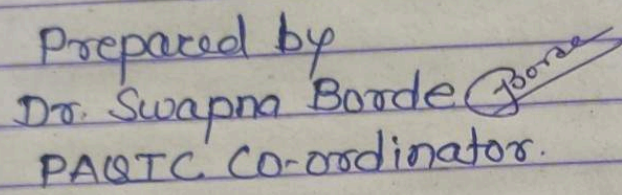 Prepared by
Dr. Swapna Borde Borde
PAQTC Co-ordinator.